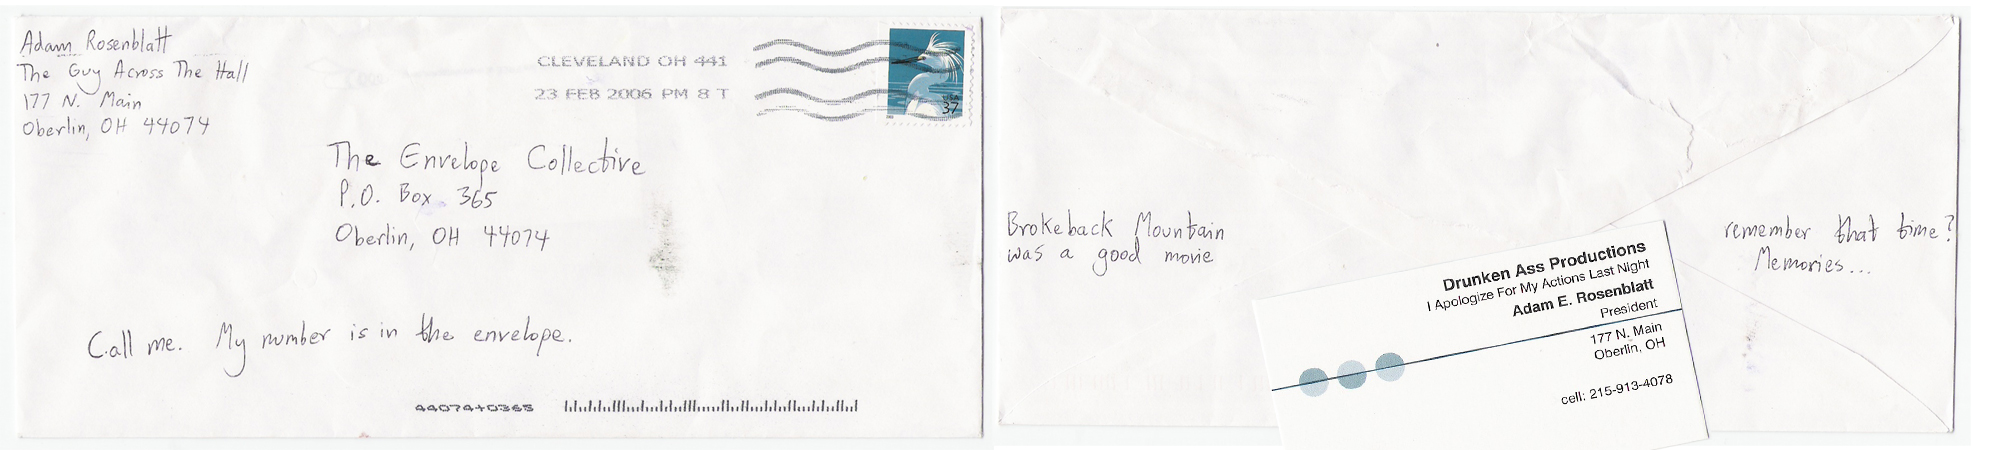 Adam Rosenblatt
The Guy Across The Hall
177 N. Main
Oberlin, OH 44074
CLEVELAND OH 441
23 FEB 2006 PM 8 T
USA
37
The Envelope Collective
P.O. Box 365
Oberlin, OH 44074
Call me. My number is in the envelope.
44074+0365
Brokeback Mountain
was a good movie
remember that time?
Memories...
Drunken Ass Productions
I Apologize For My Actions Last Night
Adam E. Rosenblatt
President
177 N. Main
Oberlin, OH
cell: 215-913-4078